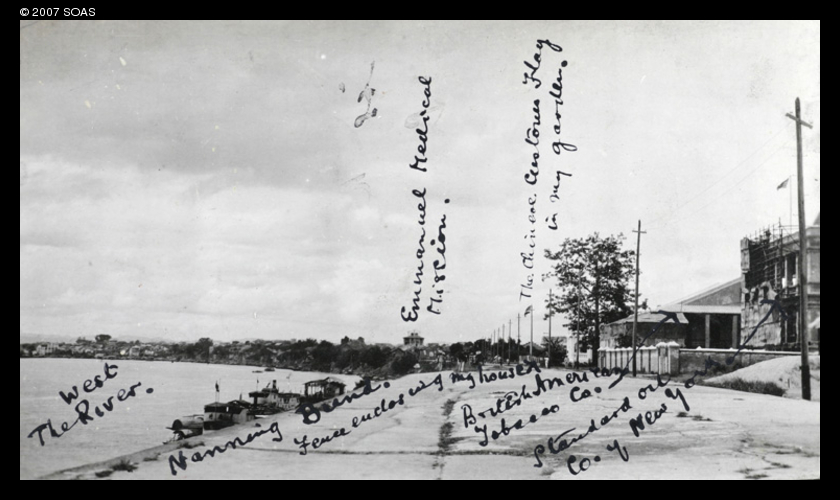 © 2007 SOAS
Emmanuel Medical
Mission.
The Chinese Customs Flag
in my garden.
The West
River.
Nanning Bund.
Fence enclosing my house
British American
Tobacco Co.
Standard Oil
Co. of New Yo